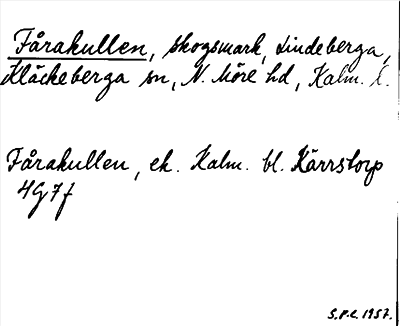 Fårakullen, skogsmark, Lindeberga,
Kläckeberga sn, N. Möre hd, Kalm. l.
Fårakullen, ek. Kalm. bl. Kärrstorp
4G7f
S.P.L. 1957.